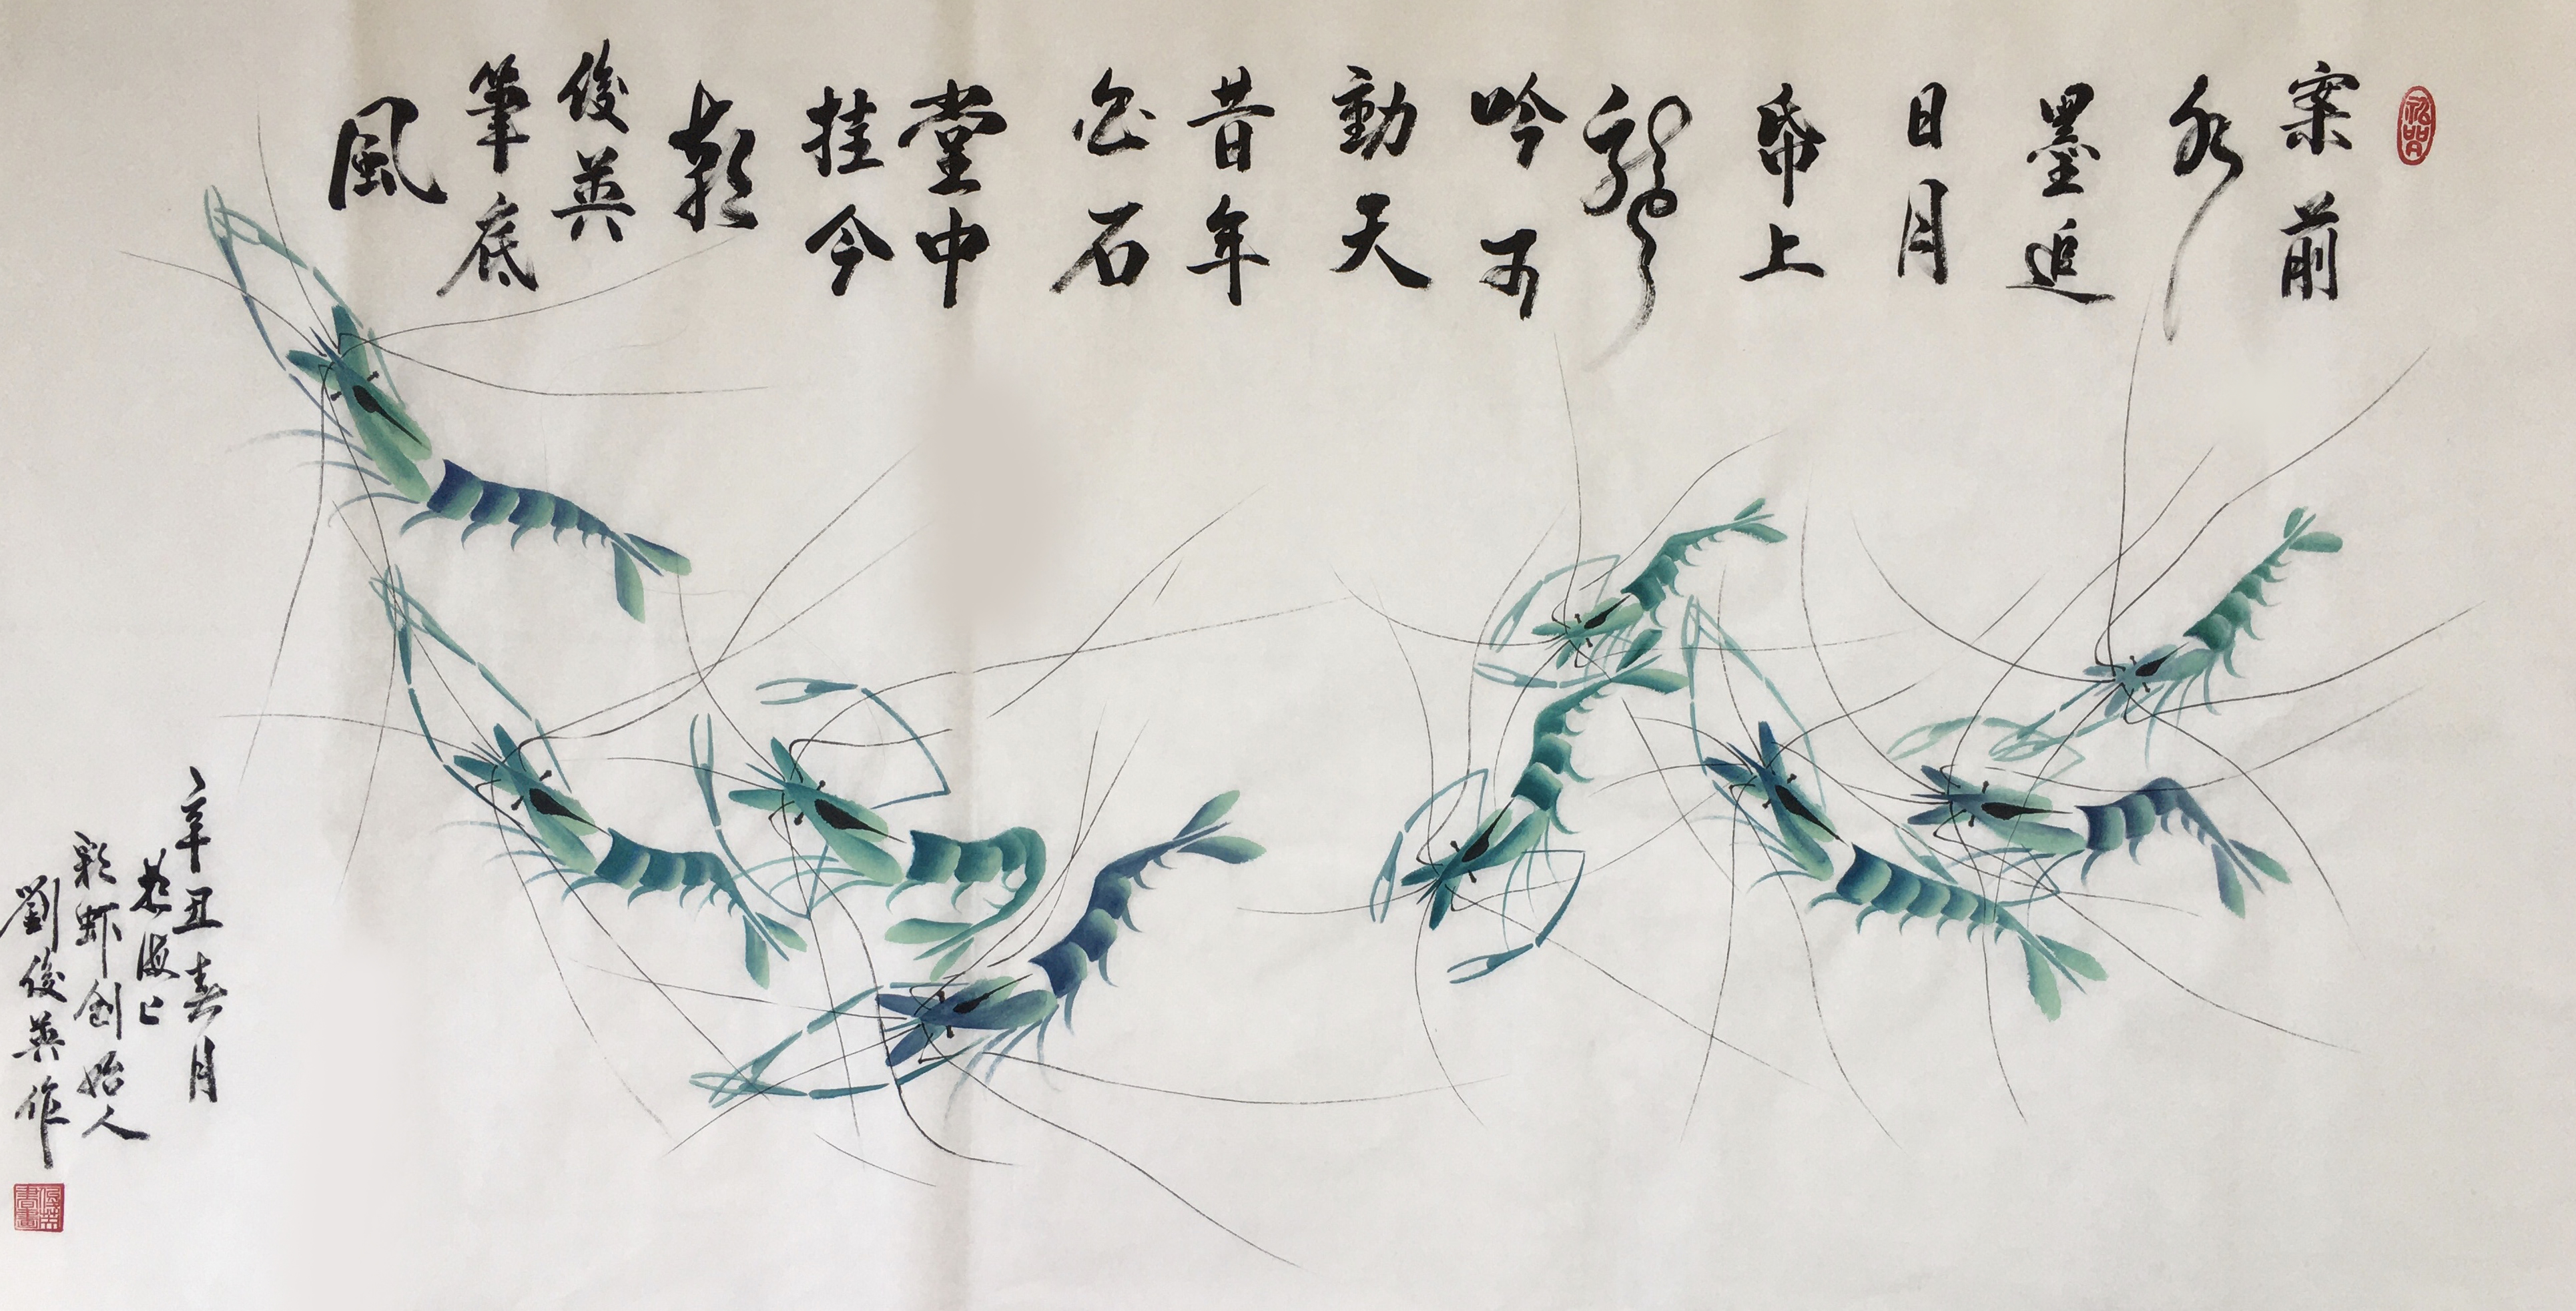 案前
水
墨追
日月
帋上
龍
吟可
動天
昔年
白石
堂中
挂今
朝
俊英
筆底
風
辛丑春月
彩虾创始人
劉俊英作
俊英書畫